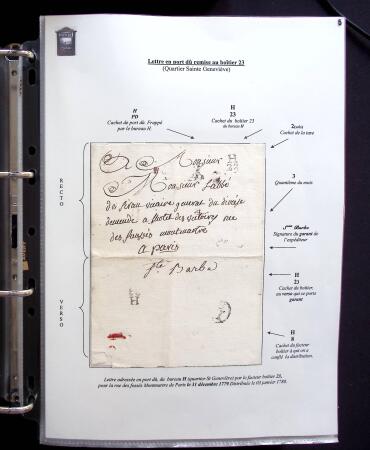 6
Lettre en port dû remise au boîtier 23
(Quartier Sainte Geneviève)
H
PD
Cachet de port dû. Frappé
par le bureau H.
H
23
Cachet du boîtier 23
du bureau H
2sols
Cachet de la taxe
3
Quantième du mois
Sgnature du garant de
l'expéditeur
H
23
Cachet du boîtier,
au verso qui se porte
garant
H
8
Cachet du facteur
boîtier à qui on a
confié la distribution.
RECTO
VERSO
A Monsieur
Monsieur l'abbé
vicaire general du diocese
hotel des victoires rue
des fossés montmartre
a paris
Ste Barbe
Lettre adressée en port dû, du bureau H (quartier St Geneviève) par le facteur boîtier 23,
pour la rue des fossés Montmartre de Paris le 31 décembre 1779 Distribuée le 01 janvier 1780.